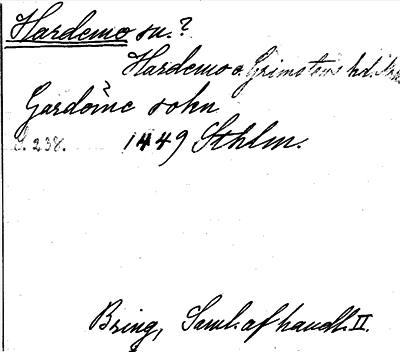 Hardemo sn.?
Hardemo o Grimstens hd.
Gardome sokn
S. 238. 1449 Sthlm.
Bring, Saml. af handl. II.